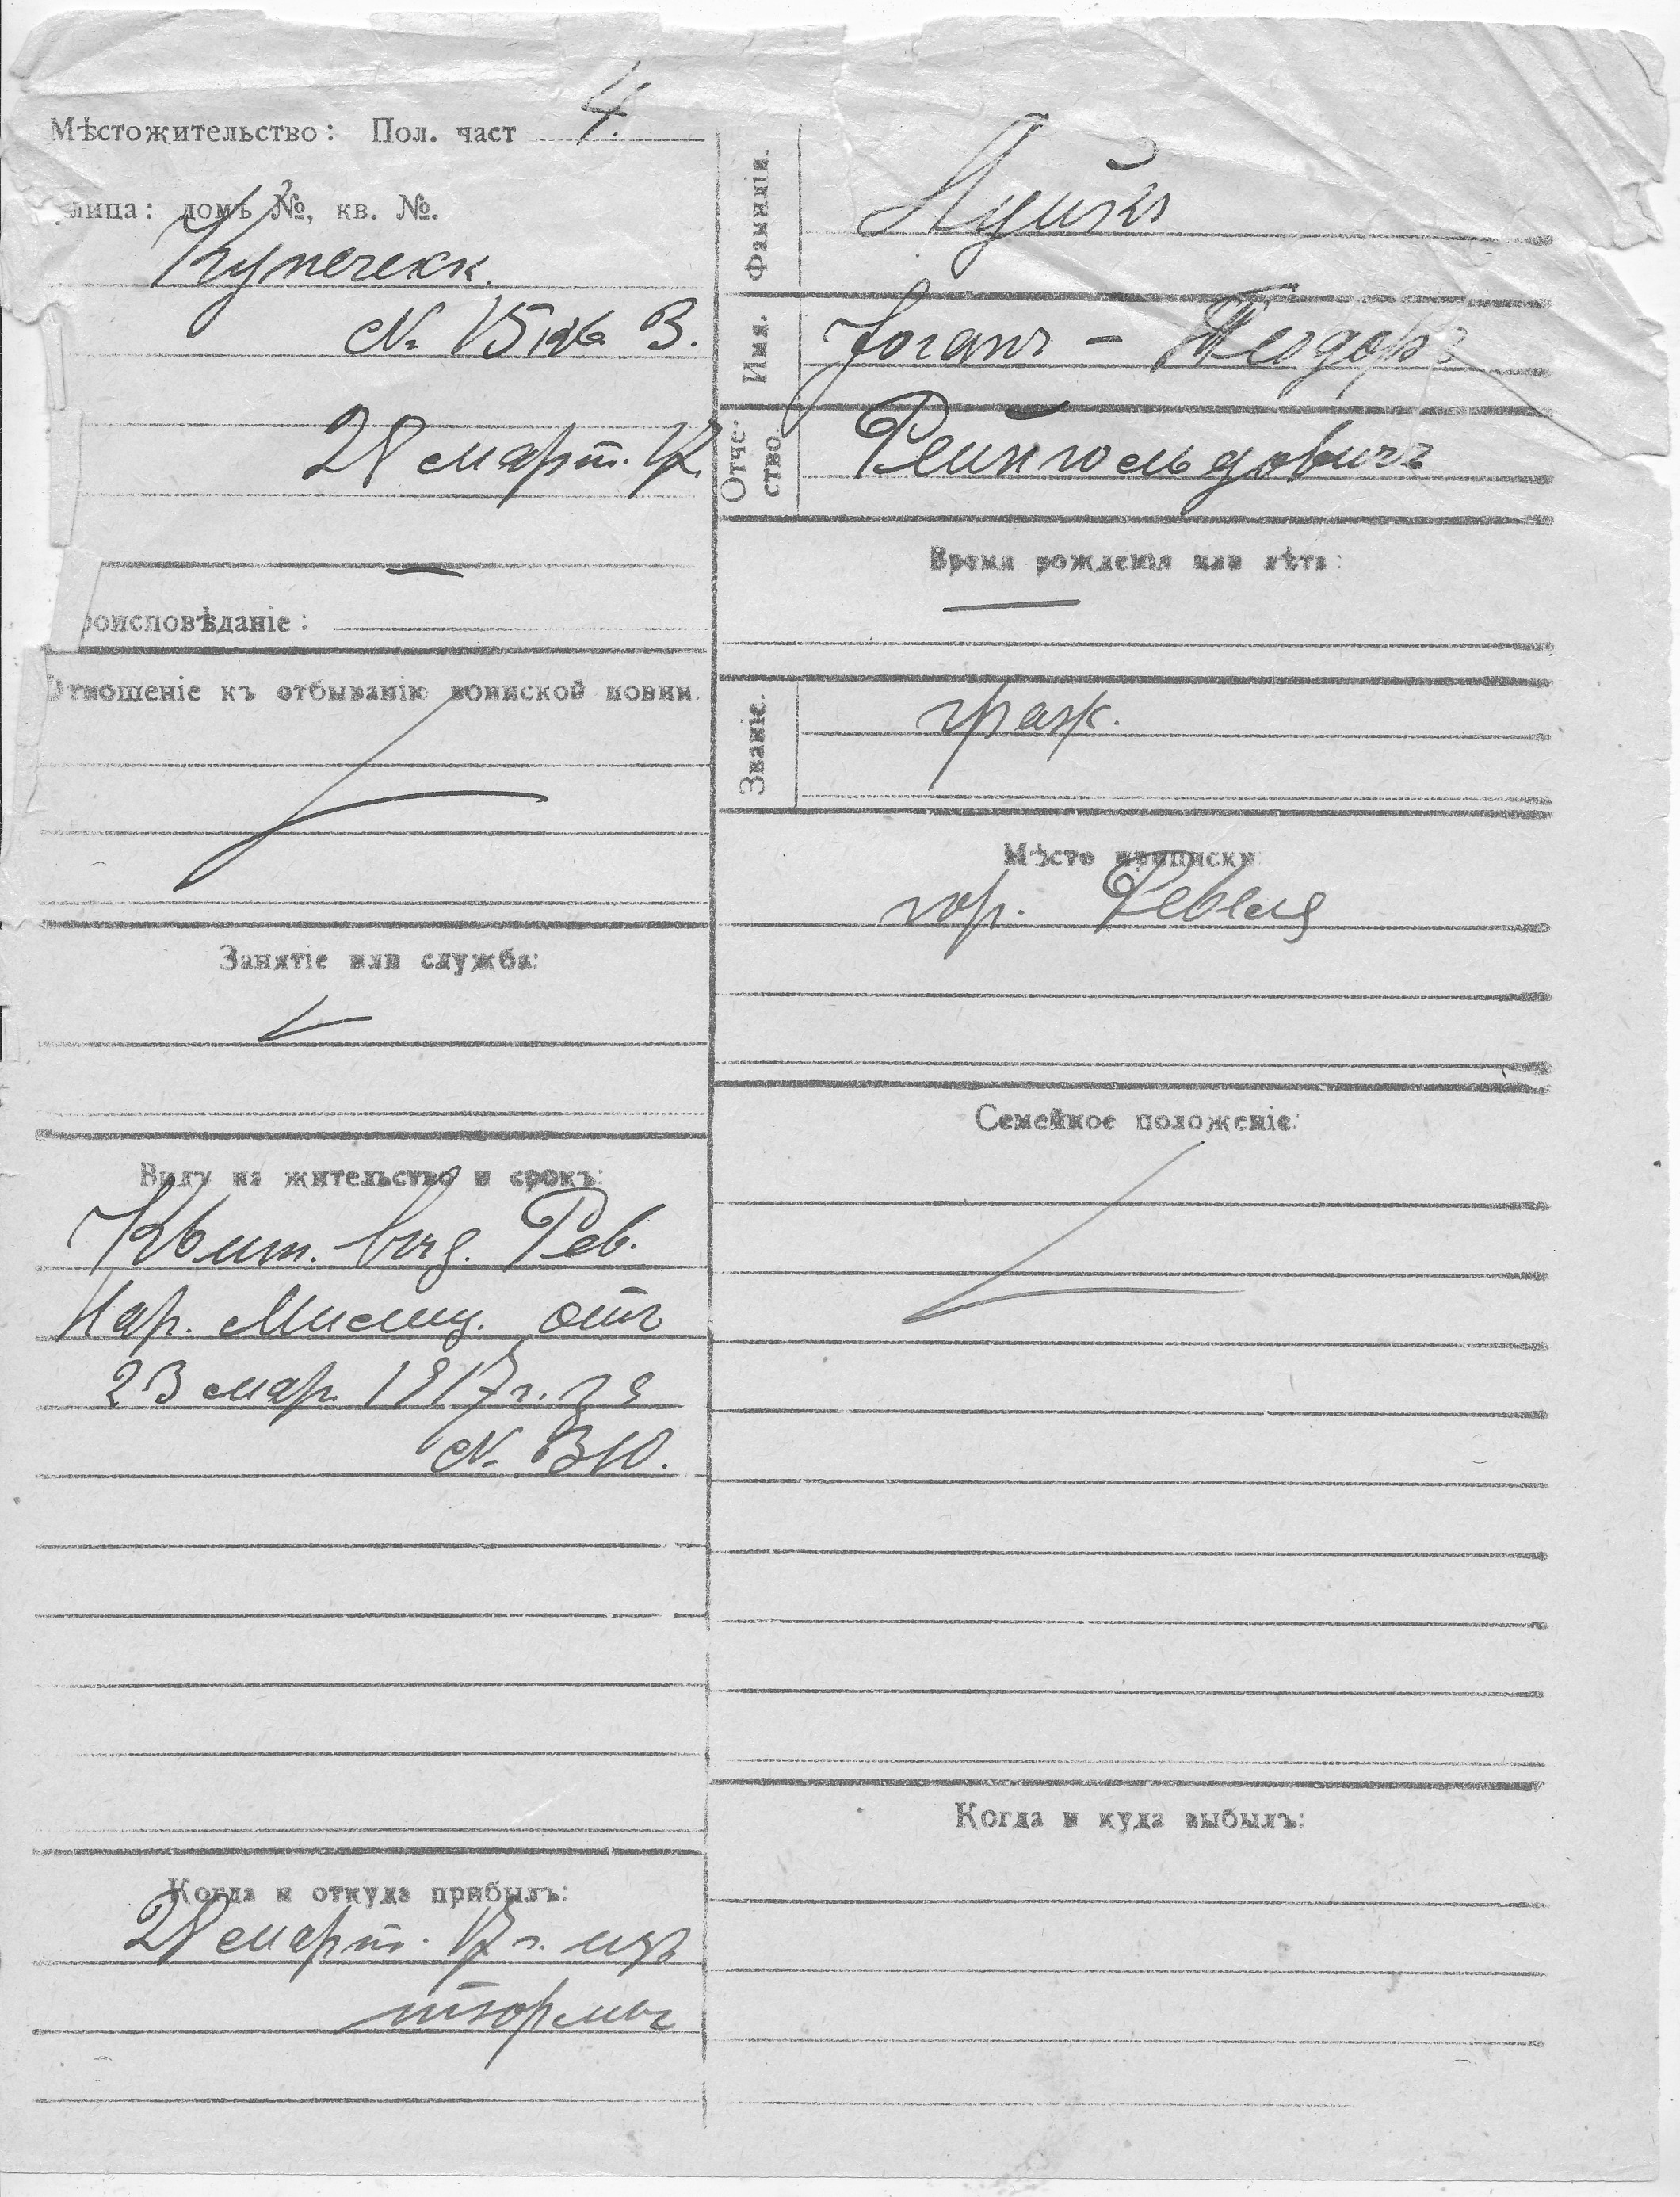 Мѣстожительство: Пол. част 4.
лица: домъ №, кв. №.
Купеческ.
№ 15 кв. 3.
28 март. 17
роисповѣданіе:
Отношеніе къ отбыванію воинской повин.
Занятіе или служба:
Видъ на жительство и срокъ:
Квит. выд. Рев.
Нар. Милиц. отъ
23 мар. 1917 г. за
№ 310.
Когда и откуда прибылъ:
28 март. 17 г. изъ
тюрьмы
Фамилія.
Имя. Іоганъ - Теодоръ
Отче-
ство. Рейнгольдовичъ
Время рожденія или лѣта:
Званіе. граж.
Мѣсто приписки
гор. Ревель
Семейное положеніе:
Когда и куда выбылъ: